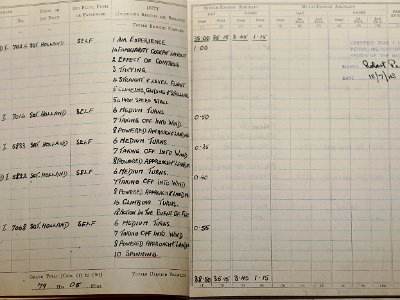 PILOT, OR
1ST PILOT
2ND PILOT, PUPIL
OR PASSENGER
DUTY
(INCLUDING RESULTS AND REMARKS)
TOTALS BROUGHT FORWARD
I 7026 SGT. HOLLAND SELF 1 AIR EXPERIENCE.
1A FAMILIARITY COCKPIT LAYOUT
2 EFFECT OF CONTROLS
3 TAXYING.
4 STRAIGHT & LEVEL FLIGHT
5 CLIMBING, GLIDING & STALLING
HIGH SPEED STALL
I 7016 SGT. HOLLAND SELF 6 MEDIUM TURNS.
7 TAKING OFF INTO WIND
8 POWERED APPROACH & LANDING
I 5833 SGT. HOLLAND SELF 6 MEDIUM TURNS.
7 TAKING OFF INTO WIND
8 POWERED APPROACH & LANDING
I 5822 SGT. HOLLAND SELF 6 MEDIUM TURNS.
7 TAKING OFF INTO WIND
8 POWERED APPROACH & LANDING
CLIMBING TURNS.
ACTION IN THE EVENT OF FIRE
I 7068 SGT. HOLLAND SELF 6 MEDIUM TURNS.
7 TAKING OFF INTO WIND
8 POWERED APPROACH & LANDING
10 SPINNING.
GRAND TOTAL [Cols. (1) to (10)]
79 Hrs. 05 Mins.
TOTALS CARRIED FORWARD
SINGLE-ENGINE AIRCRAFT
MULTI-ENGINE AIRCRAFT
DAY
NIGHT
DAY
35·00 36·15 3·45 1·15
1·00
CERTIFIED THAT I
SIGNED Robert
DATE
0·50
0·40
0·55
38·50 36·15 3·45 1·15